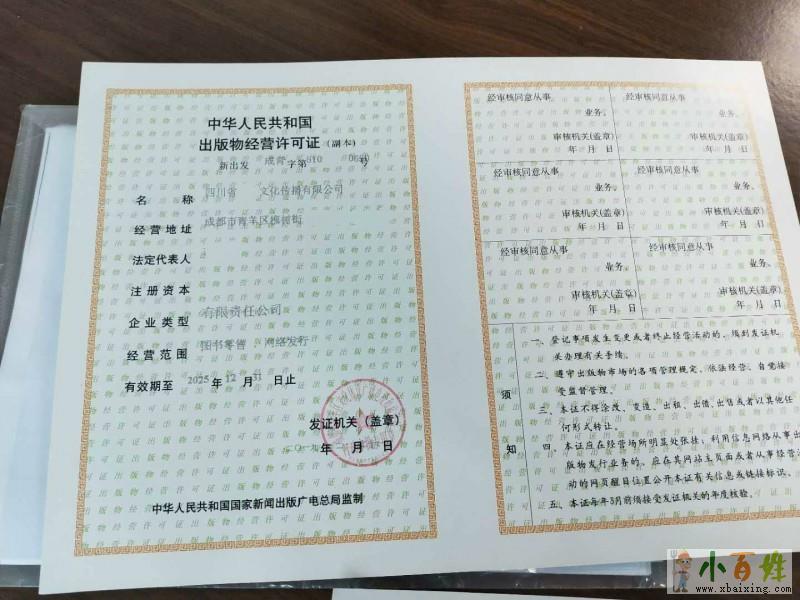 中华人民共和国
出版物经营许可证（副本）
新出发 成青 字第 510 号
名 称 四川省 文化传播有限公司
经营地址 成都市青羊区
法定代表人
注册资本
企业类型 有限责任公司
经营范围 图书零售 网络发行
有效期至 2025年12月31日止
发证机关（盖章）
年 月 日
中华人民共和国国家新闻出版广电总局监制
经审核同意从事 经审核同意从事
业务。 业务。
审核机关(盖章) 审核机关(盖章)
年 月 日 年 月 日
经审核同意从事 经审核同意从事
业务。 业务。
审核机关(盖章) 审核机关(盖章)
年 月 日 年 月 日
经审核同意从事 经审核同意从事
业务。 业务。
审核机关(盖章) 审核机关(盖章)
年 月 日 年 月 日
须知
一、登记事项发生变更或者终止经营活动的，须到发证机
关办理有关手续。
二、遵守出版物市场的各项管理规定，依法经营、自觉接
受监督管理。
三、本证不得涂改、变造、出租、出借、出售或者以其他任
何形式转让。
四、本证应在经营场所明显处张挂；利用信息网络从事出
版物发行业务的，应在其网站主页面或者从事经营活
动的网页醒目位置公开本证有关信息或链接标识。
五、本证每年3月前须接受发证机关的年度核验。
小百姓
www.xbaixing.com